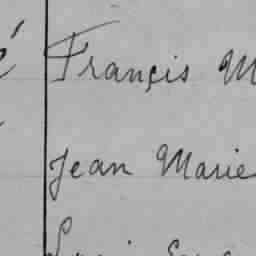 Françis M
Jean Marie